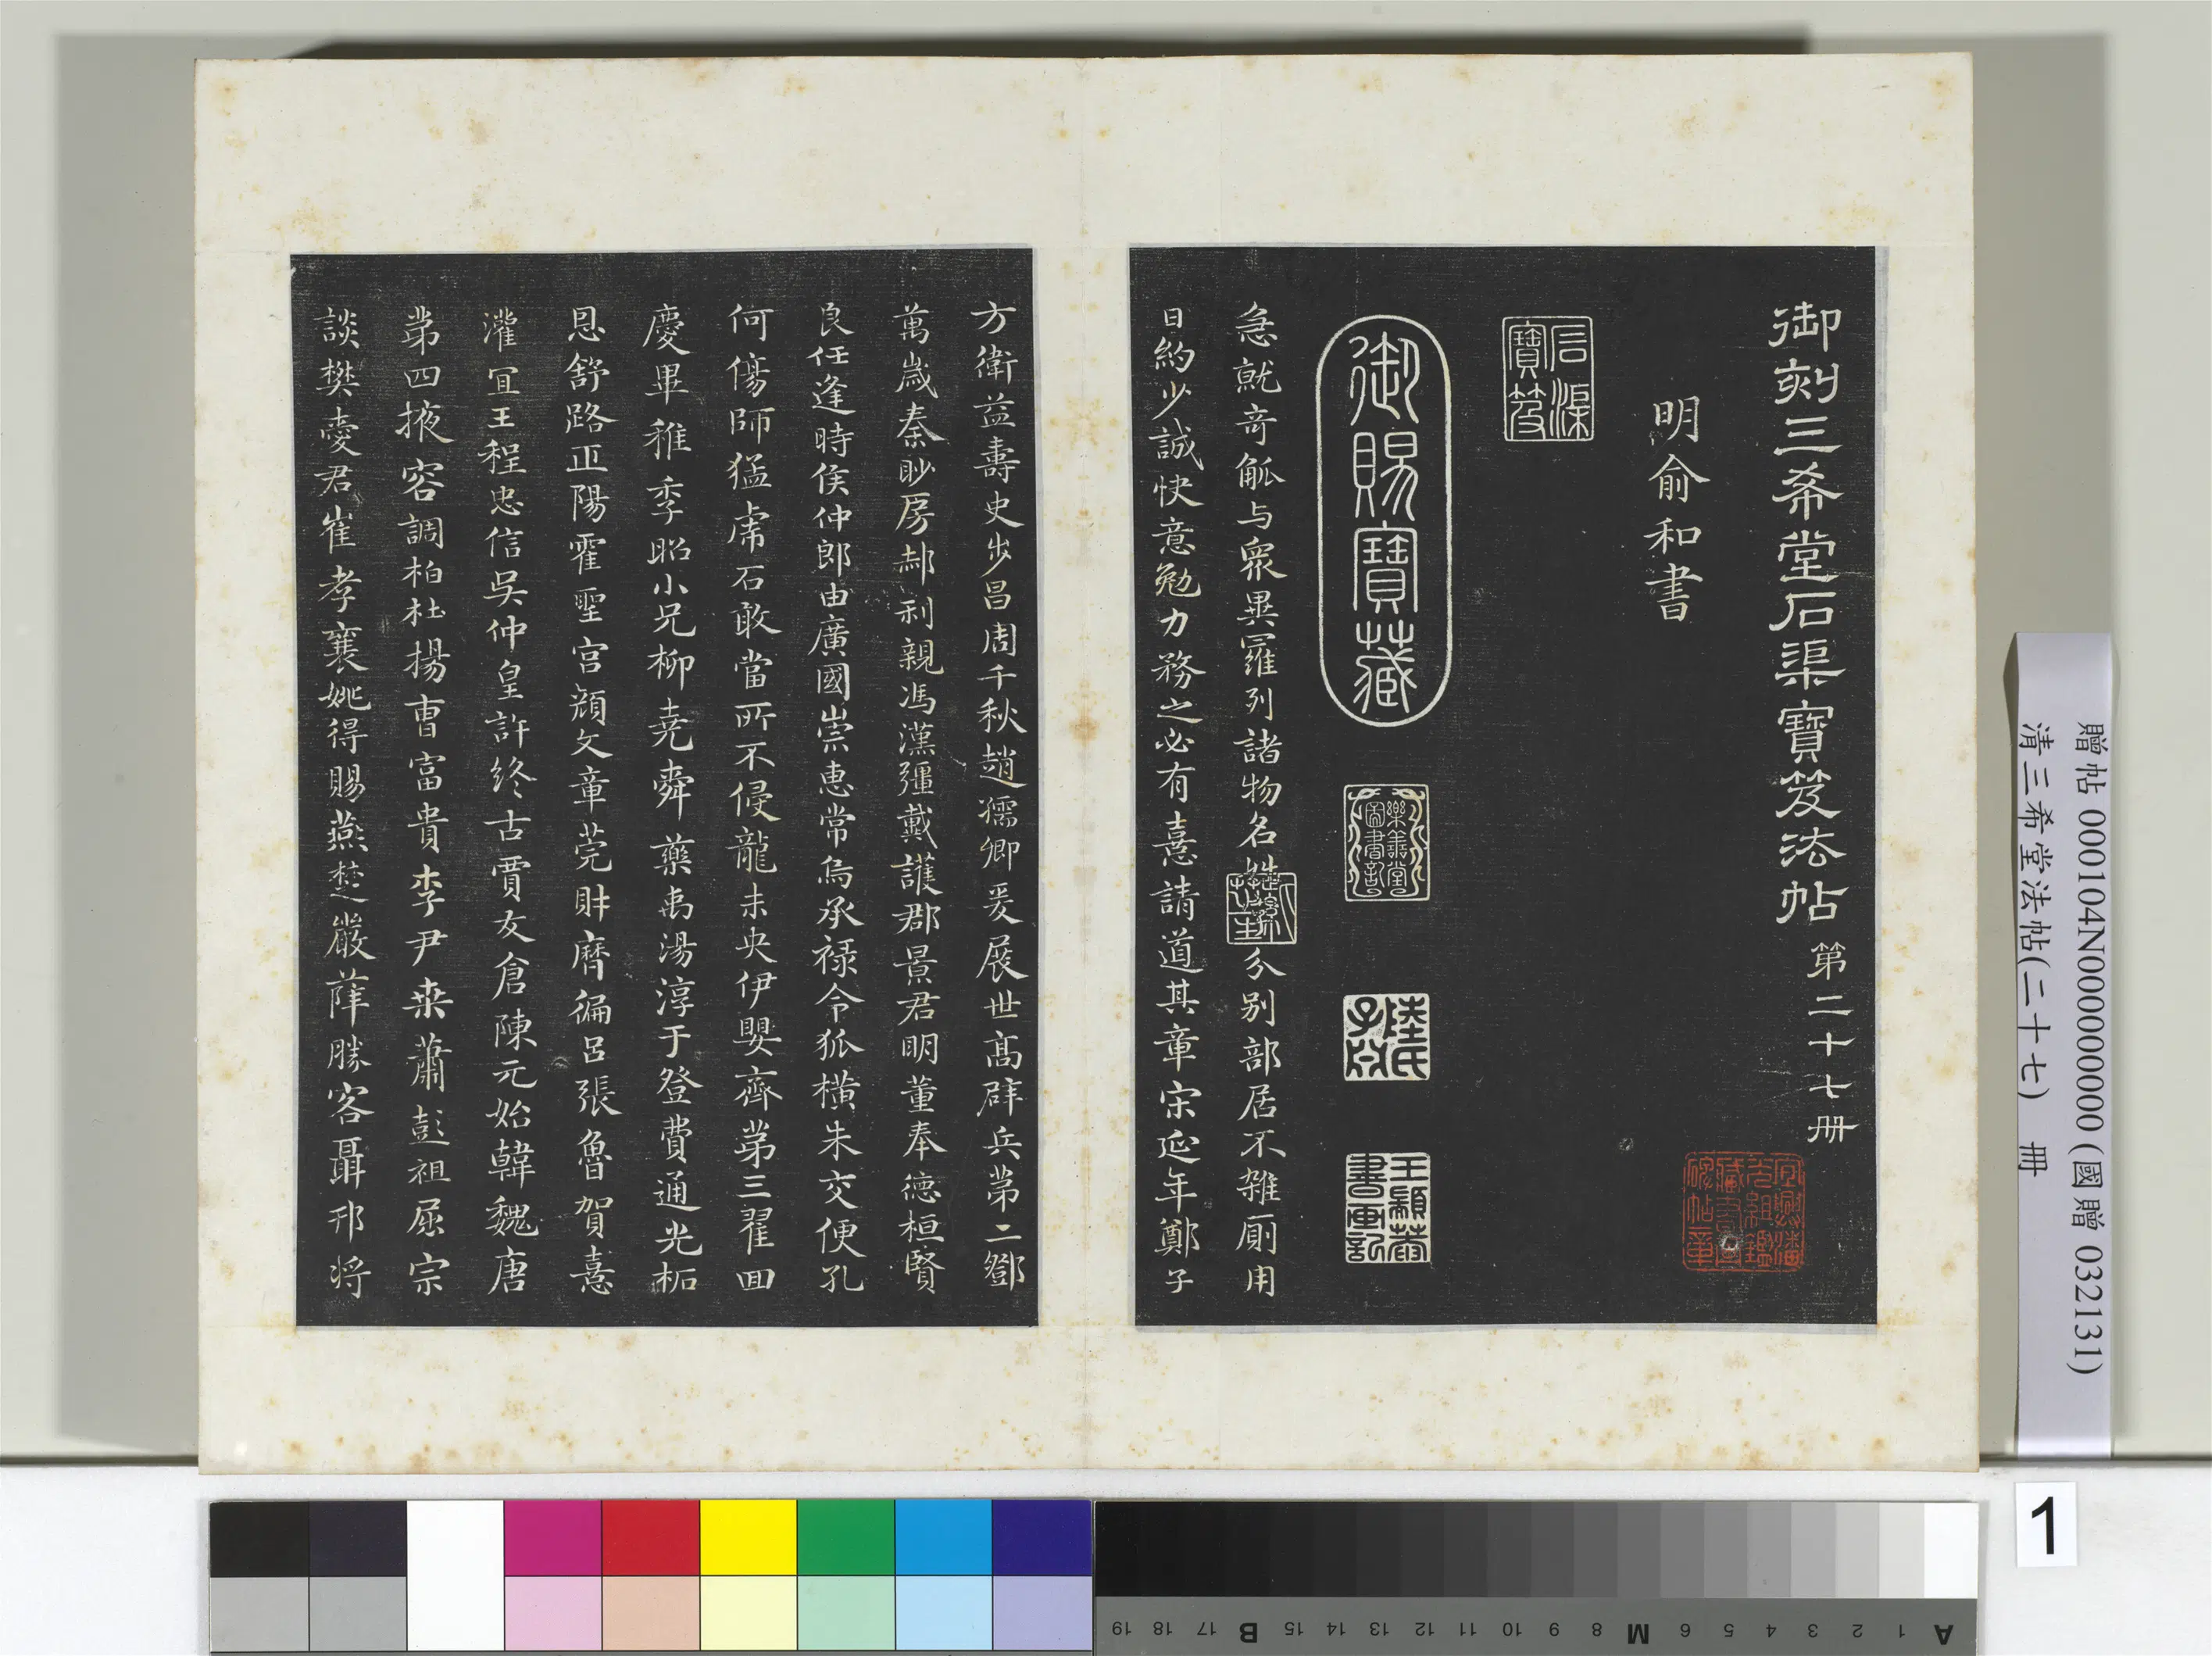 御刻三希堂石渠寶笈法帖 第二十七冊
明俞和書
石渠寶笈
御賜寶藏
樂善堂圖書記
急就奇觚与衆異羅列諸物名姓字分别部居不雜廁用
日約少誠快意勉力務之必有憙請道其章宋延年鄭子
方衛益壽史步昌周千秋趙孺卿爰展世高辟兵苐二鄧
萬歲秦眇房郝利親馮漢彊戴護郡景君明董奉德桓賢
良任逢時侯仲郎由廣國崇惠常烏承禄令狐橫朱交便孔
何傷師猛虎石敢當所不侵龍未央伊嬰齊苐三翟回
慶畢稚季昭小兄柳堯舜藥禹湯淳于登費通光柘
恩舒路正陽霍聖宮顏文章莞財磨徧呂張魯賀憙
灌冝王程忠信吳仲皇許終古賈友倉陳元始韓魏唐
苐四掖容調柏杜揚曹富貴李尹桒蕭彭祖屈宗
談樊愛君崔孝襄姚得賜燕楚嚴薛勝客聶邗将
贈帖 000104N000000000 (國贈 032131)
清三希堂法帖(二十七) 冊
1
A 1 2 3 4 5 6 M 8 9 10 11 12 13 14 15 B 17 18 19